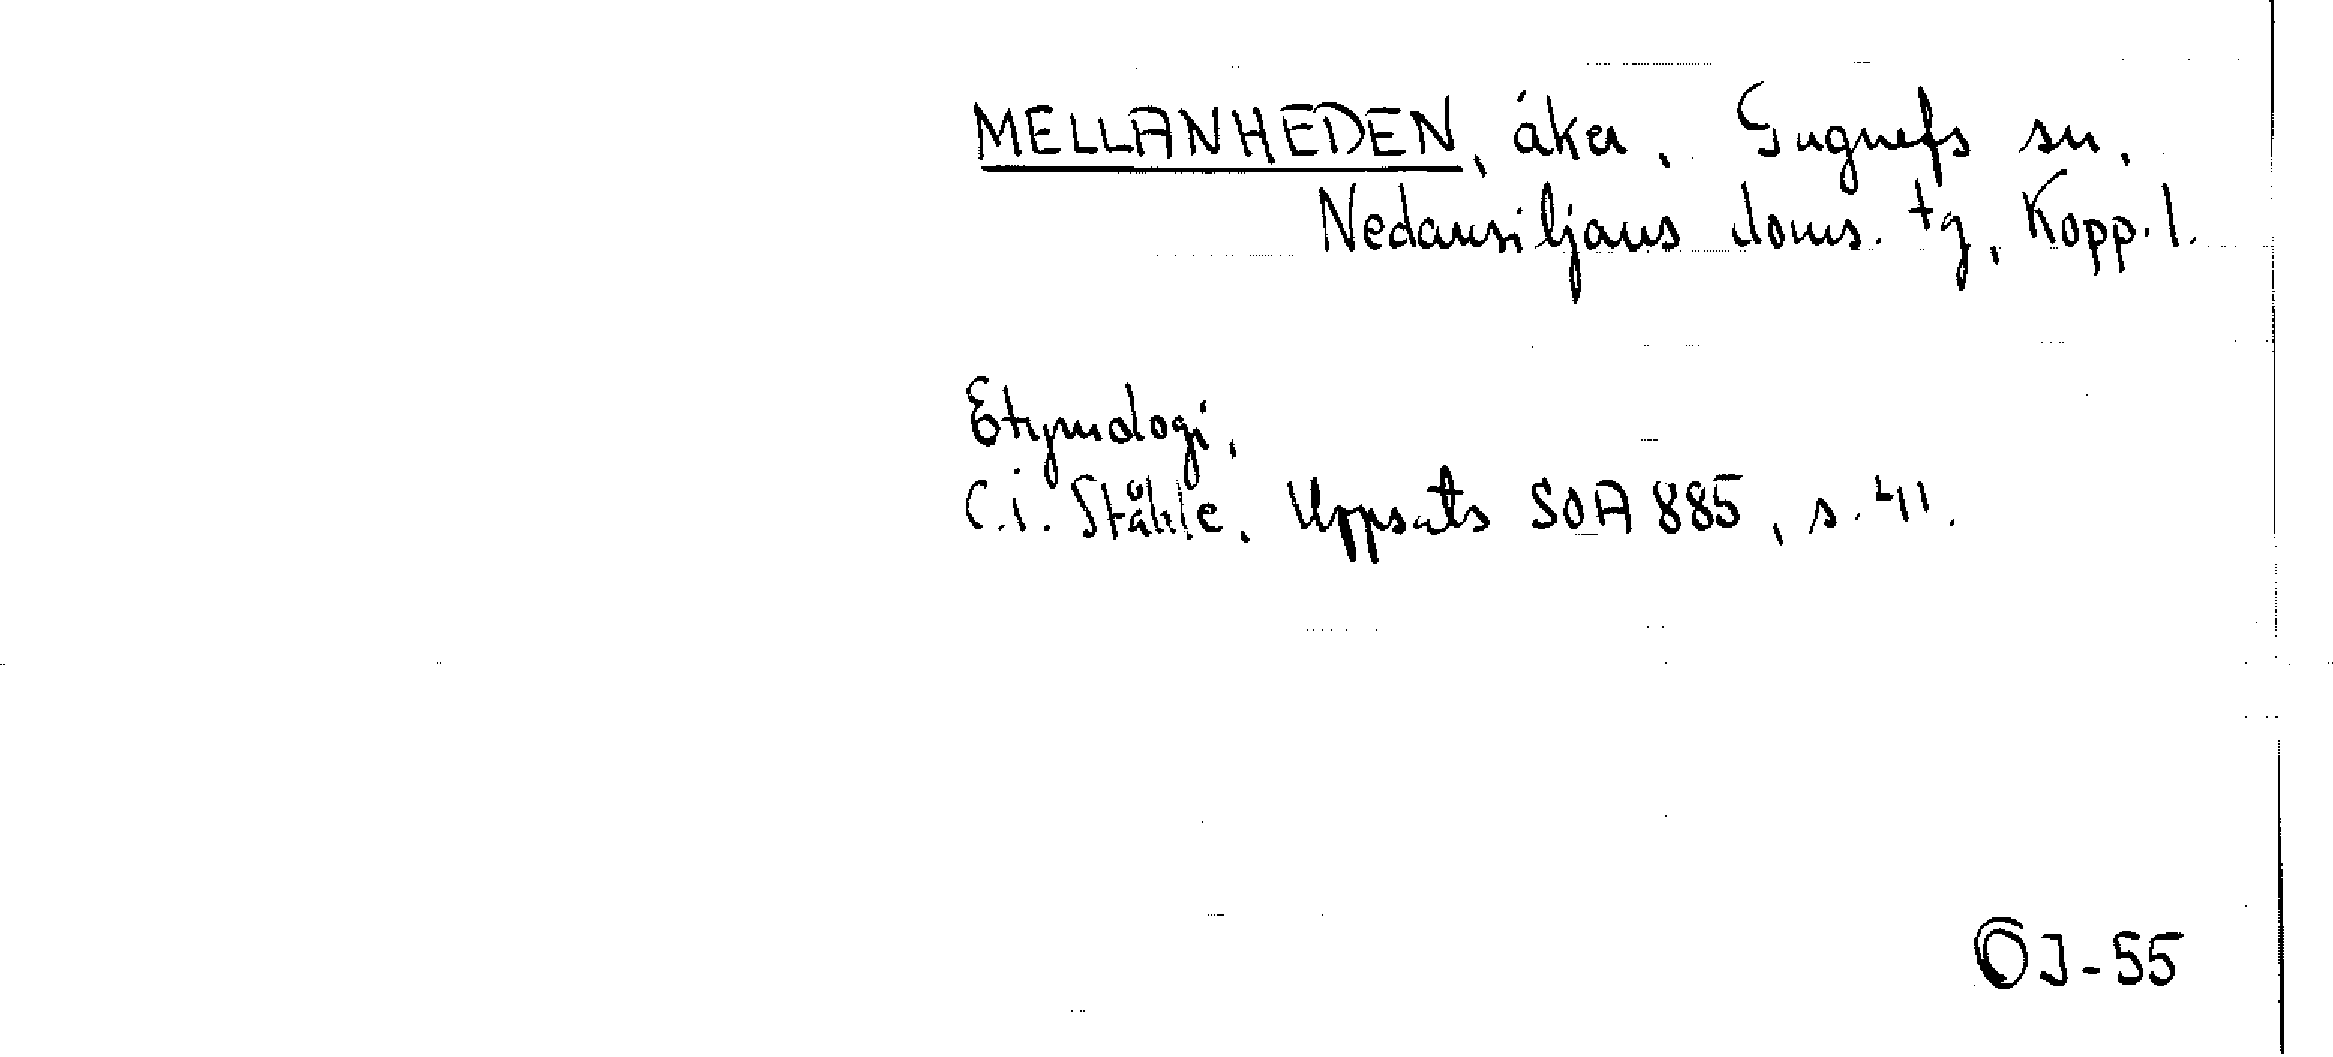 MELLANHEDEN, åker. Gagnefs sn.
Nedansiljans doms. tg, Kopp. l.
Etymologi.
C.I. Ståhle. Uppsats SOA 885, s. 41.
OJ-55